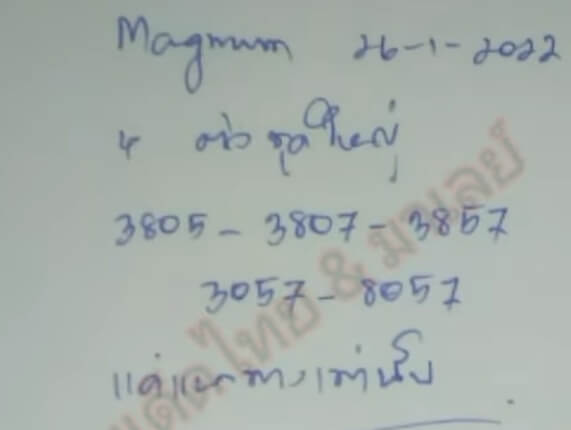 Magnum 26-1-2022
4 ตัว ชุดใหญ่
3805 - 3807 - 3857
3057 - 8057
แค่แนวทางเท่านั้น
ไทย & มาเลย์